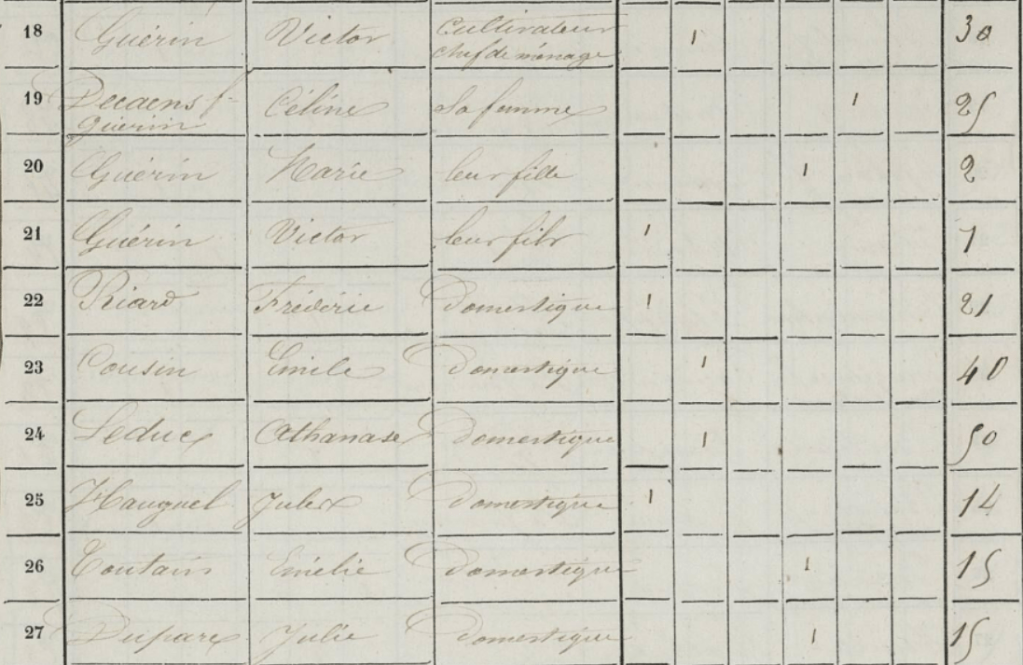 18 Guérin Victor Cultivateur 1 30
chef de ménage
19 Decaens f. Céline Sa femme 1 25
Guérin
20 Guérin Marie leur fille 1 2
21 Guérin Victor leur fils 1 1
22 Riard Frédéric Domestique 1 21
23 Cousin Emile Domestique 1 40
24 Leduc Athanase Domestique 1 50
25 Hauguel Jules Domestique 1 14
26 Coutain Emélie Domestique 1 15
27 Duparc Julie Domestique 1 15